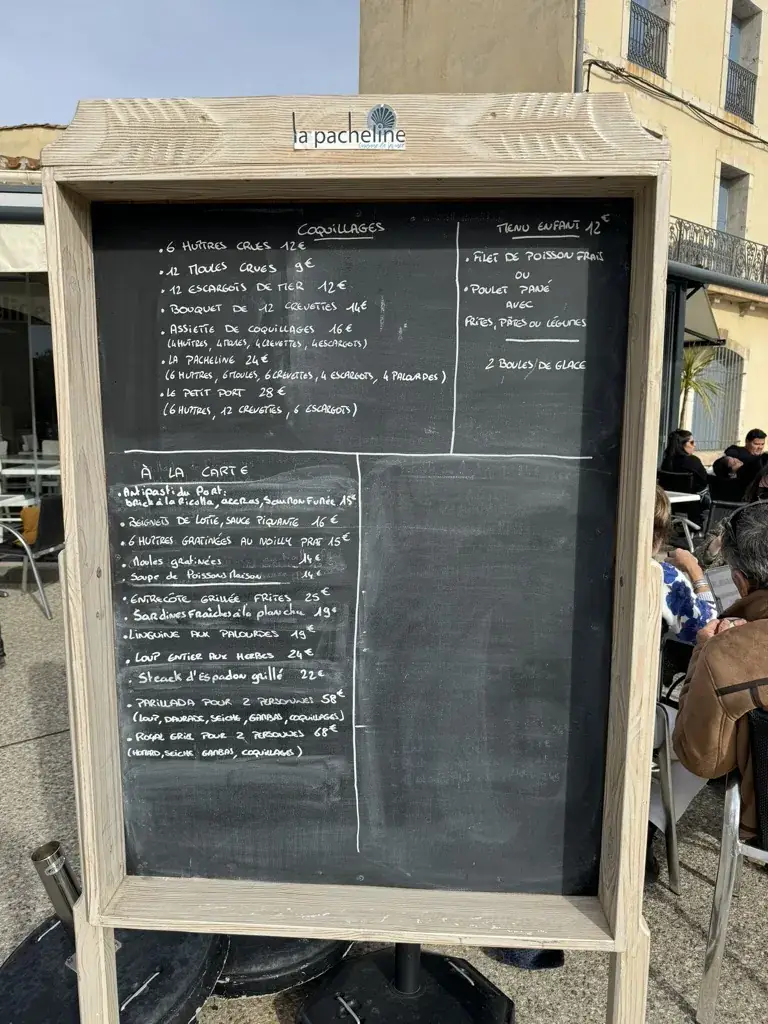 la pacheline
COQUILLAGES
. 6 HUÎTRES CRUES 12€
. 12 MOULES CRUES 9€
. 12 ESCARGOTS DE MER 12€
. BOUQUET DE 12 CREVETTES 14€
. ASSIETTE DE COQUILLAGES 16€
(4 HUÎTRES, 4 MOULES, 4 CREVETTES, 4 ESCARGOTS)
. LA PACHELINE 24€
(6 HUÎTRES, 6 MOULES, 6 CREVETTES, 4 ESCARGOTS, 4 PALOURDES)
. LE PETIT PORT 28€
(6 HUÎTRES, 12 CREVETTES, 6 ESCARGOTS)
MENU ENFANT 12€
. FILET DE POISSON FRAIS
OU
. POULET PANÉ
AVEC
FRITES, PÂTES OU LÉGUMES
2 BOULES DE GLACE
À LA CARTE
. Antipasti du Port:
brick à la Ricotta, accras, Saumon Fumée 15€
. BEIGNETS DE LOTTE, SAUCE PIQUANTE 16€
. 6 HUÎTRES GRATINÉES AU NOILLY PRAT 15€
. Moules gratinées 14€
Soupe de Poissons Maison 14€
. ENTRECÔTE GRILLÉE FRITES 25€
. Sardines Fraîches à la plancha 19€
. LINGUINE AUX PALOURDES 19€
. LOUP ENTIER AUX HERBES 24€
. Steack d'Espadon grillé 22€
. PARILLADA POUR 2 PERSONNES 58€
(LOUP, DAURADE, SEICHE, GAMBAS, COQUILLAGES)
. ROYAL GRILL POUR 2 PERSONNES 68€
(HOMARD, SEICHE GAMBAS, COQUILLAGES)